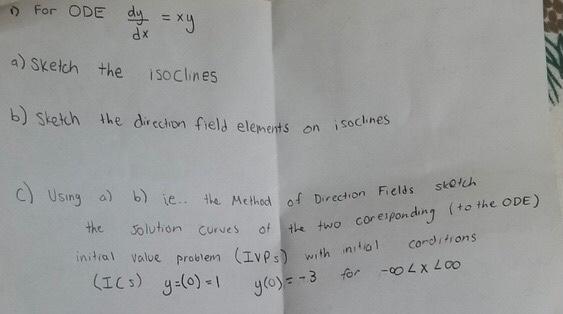 1) For ODE dy/dx = xy
a) Sketch the isoclines
b) Sketch the direction field elements on isoclines
C) Using a) b) ie.. the Method of Direction Fields sketch
the solution curves of the two coresponding (to the ODE)
initial value problem (IVPs) with initial conditions
(ICs) y=(0)=1 y(0)=-3 for -∞<x<∞